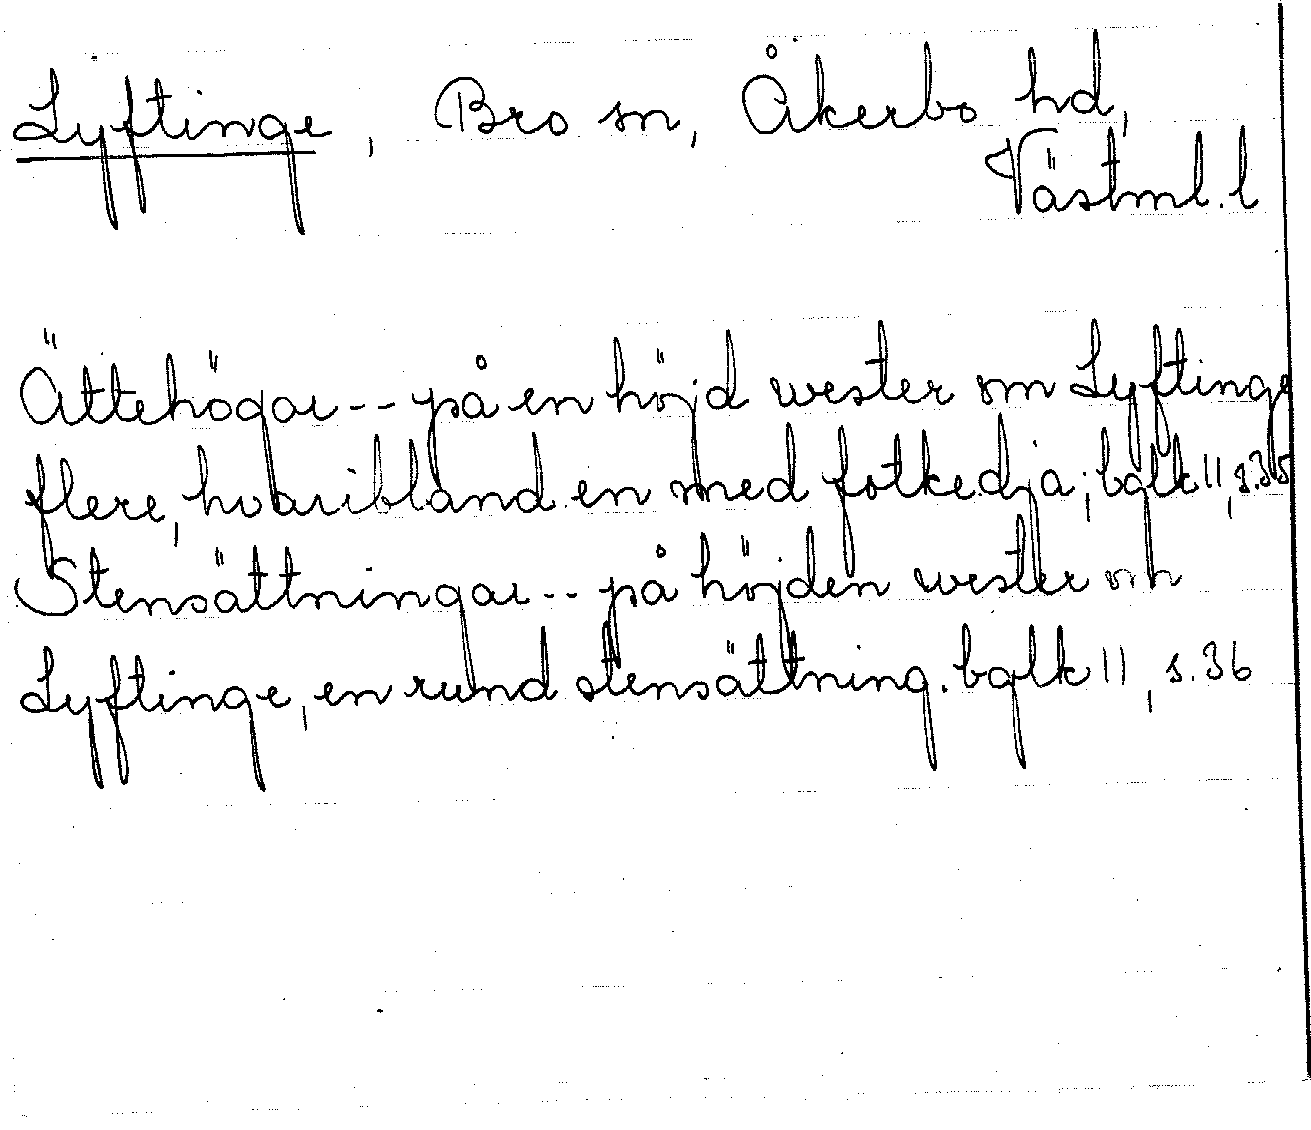 Lyftinge, Bro sn, Åkerbo hd,
Västml. l
Ättehögar -- på en höjd wester om Lyftinge
flere, hvaribland en med fotkedja; bglk 11, s. 35
Stensättningar -- på höjden wester om
Lyftinge, en rund stensättning. bglk 11, s. 36